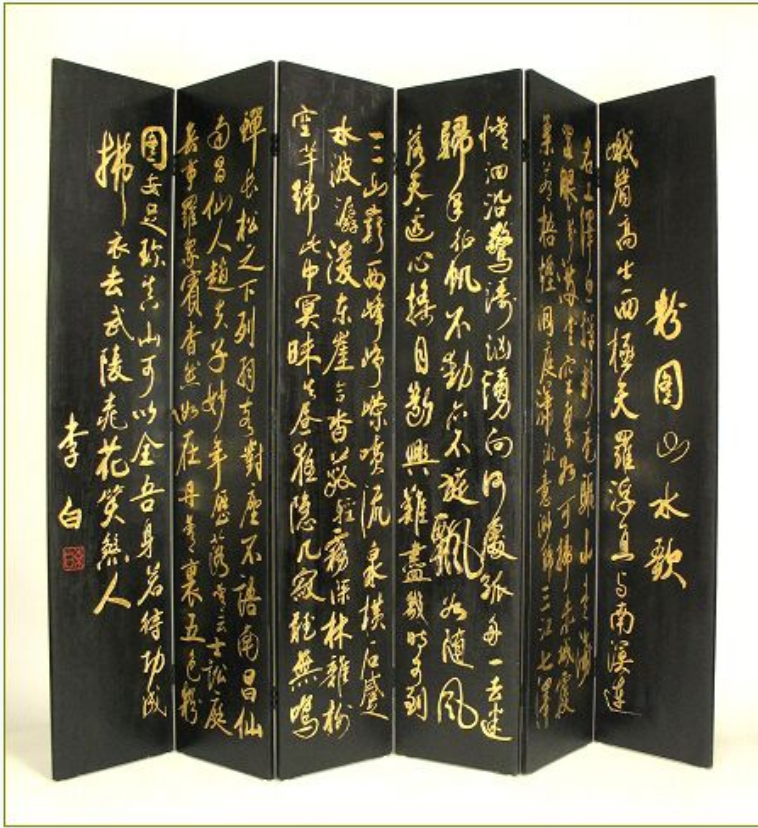 粉圖山水歌
峨眉高出西極天羅浮直与南溟連
名工繹思揮彩筆驅山走海
置眼前滿堂空翠如可掃赤城霞
氣蒼梧煙洞庭瀟湘意渺綿三江七澤
情洄沿驚濤洶湧向何處孤舟一去迷
歸年征帆不動亦不旋飄如随風
落天邊心搖目斷興難盡幾時可到
三山巔西峰崢嶸噴流泉横石蹙
水波潺湲东崖合沓蔽輕霧深林雜樹
空芊綿此中冥昧失昼夜隐几寂聽無鳴
蟬长松之下列羽客對座不語南昌仙
南昌仙人趙夫子妙年歷落青云士訟庭
無事羅眾賓杳然如在丹青裏五色粉
圖安足珍真山可以全吾身若待功成
拂衣去武陵桃花笑煞人
李白